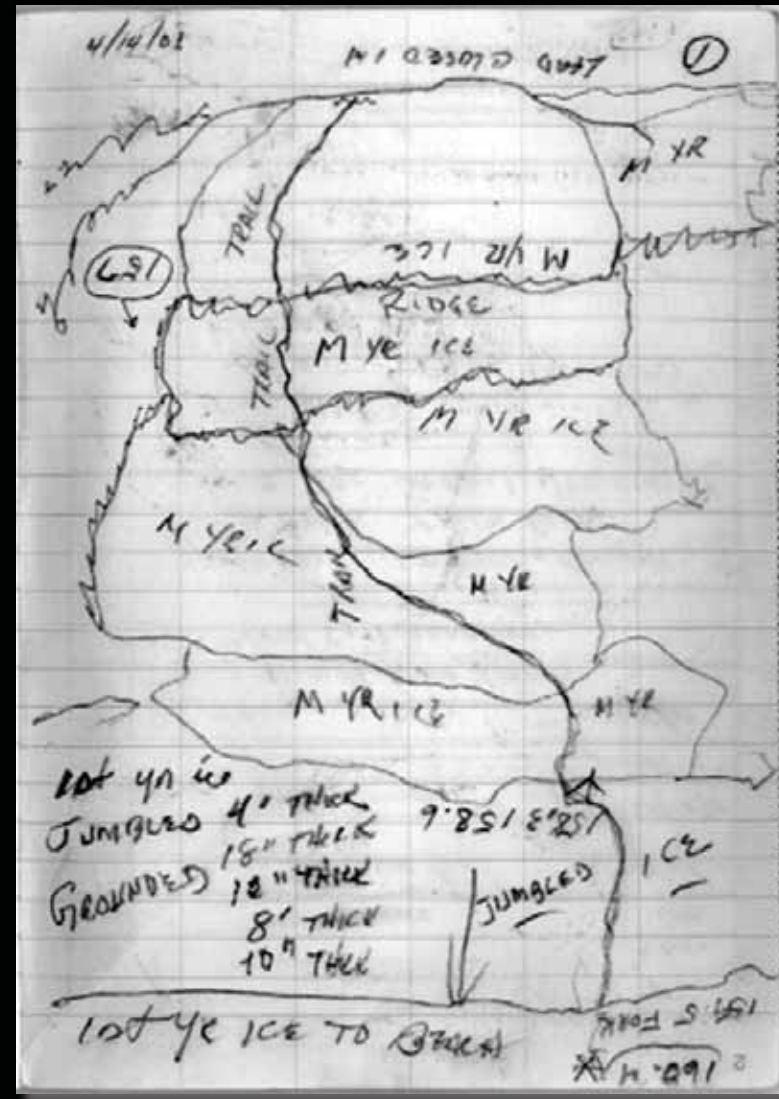 4/14/02
1
LEAD CLOSED IM
M YR
TRAIL
M YR ICE
157
RIDGE
M YR ICE
TRAIL
M YR ICE
M YR IC
TRAIL
M YR
M YR ICE
M YR
1st yr ice
JUMBLED 4" THICK
18" THICK
GROUNDED 12" THICK
8" THICK
10" THICK
158.3 158.6
JUMBLED
ICE
1st YR ICE TO BEACH
159.5 FORK
160.4
2